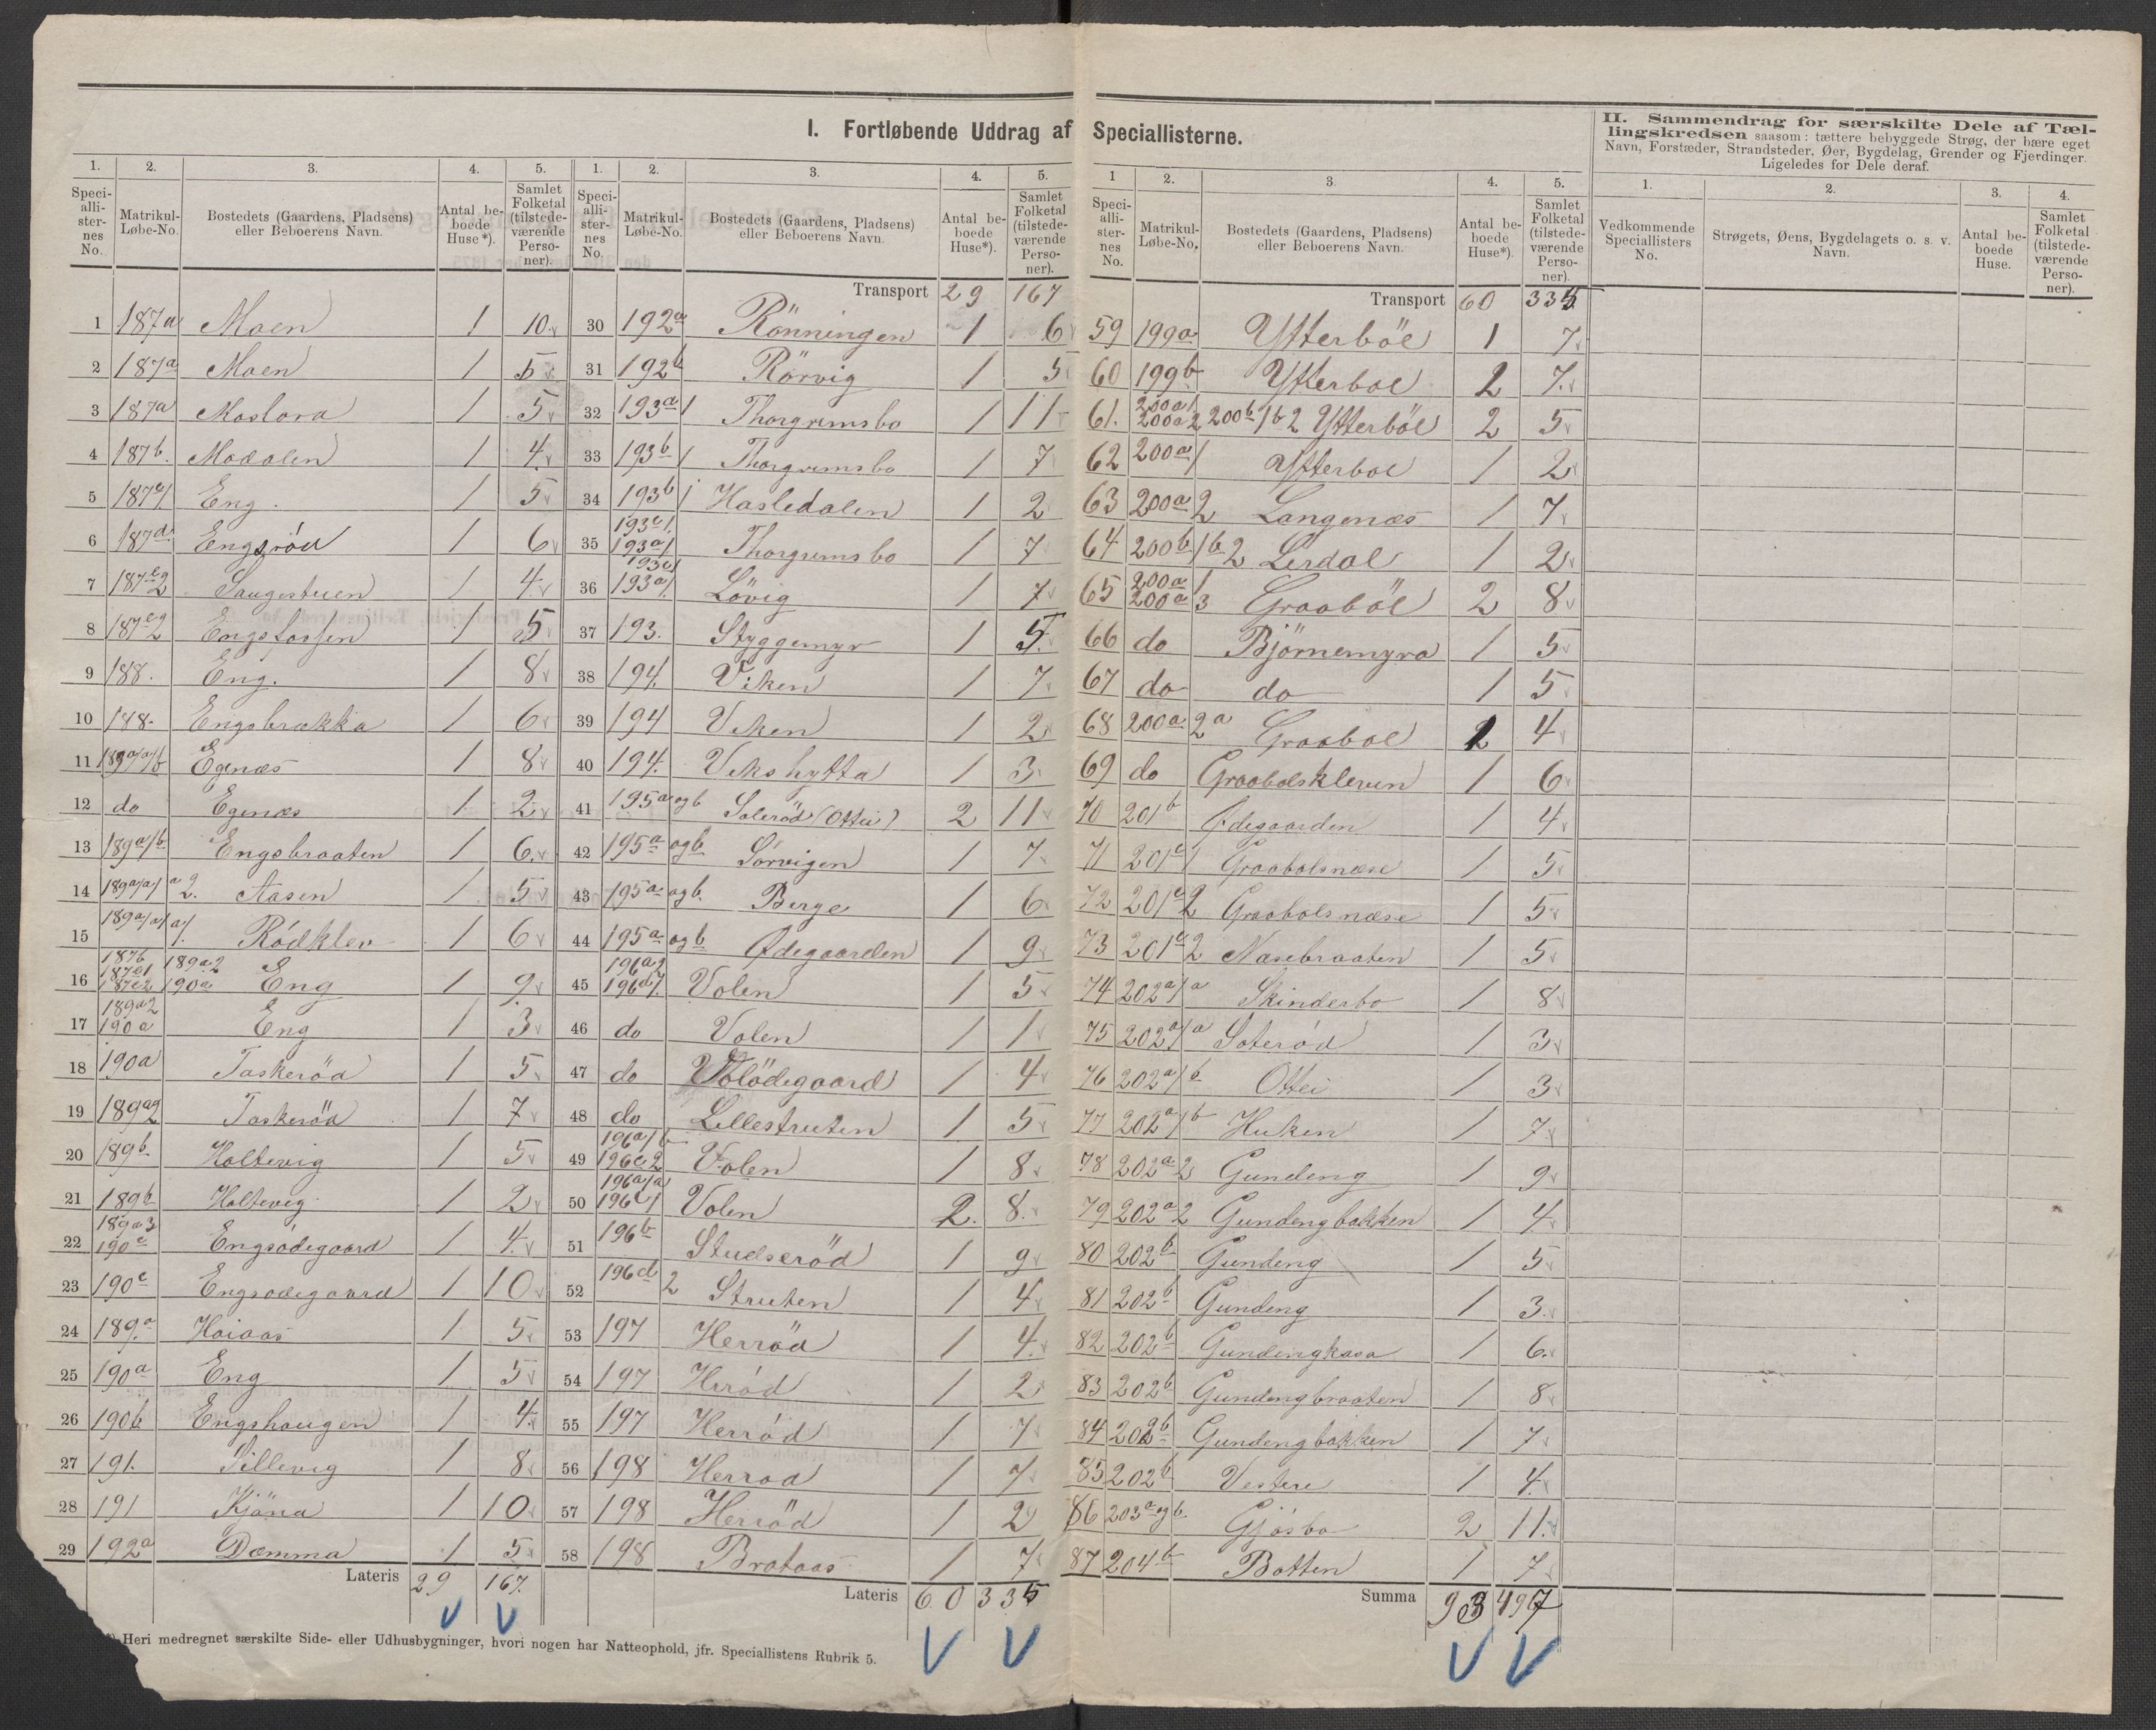 I. Fortløbende Uddrag af Speciallisterne.
II. Sammendrag for særskilte Dele af Tællingskredsen saasom: tættere bebyggede Strøg, der bære eget Navn, Forstæder, Strandsteder, Øer, Bygdelag, Grender og Fjerdinger. Ligeledes for Dele deraf.
1. 2. 3. 4. 5.
Speciallisternes No. Matrikul-Løbe-No. Bostedets (Gaardens, Pladsens) eller Beboerens Navn. Antal beboede Huse*). Samlet Folketal (tilstedeværende Personer).
1 187a Moen 1 10
2 187a Moen 1 5
3 187a Moslora 1 5
4 187b. Modalen 1 4
5 187c1 Eng. 1 5
6 187d. Engsröd 1 6
7 187e2 Saugestuen 1 4
8 187e2 Engsfossen 1 5
9 188. Eng. 1 8
10 188. Engsbrækka 1 6
11 189a1a1b Egenæs 1 8
12 do Egenæs 1 2
13 189a1b Engsbraaten 1 6
14 189a1a1a2. Aasen 1 5
15 189a1a1a1. Rödklev 1 6
16 187b 187c1 187e2 189a2 190a Eng 1 9
17 189a2 190a Eng 1 3
18 190a Taskeröd 1 5
19 189a2 Taskeröd 1 7
20 189b Holtevig 1 5
21 189b Holtevig 1 2
22 189a3 190c Engsödegaard 1 4
23 190c Engsödegaard 1 10
24 189a Haiaas 1 5
25 190a Eng 1 5
26 190b Engshaugen 1 4
27 191. Sillevig 1 8
28 191 Kjöna 1 10
29 192a Dæmma 1 5
Lateris 29 167.
1. 2. 3. 4. 5.
Speciallisternes No. Matrikul-Løbe-No. Bostedets (Gaardens, Pladsens) eller Beboerens Navn. Antal beboede Huse*). Samlet Folketal (tilstedeværende Personer).
Transport 29 167
30 192a Rönningen 1 6
31 192b Rörvig 1 5
32 193a1 Thorgrimsbo 1 11
33 193b1 Thorgrimsbo 1 7
34 193b1 Hasledalen 1 2
35 193c1. 193a1 Thorgrimsbo 1 7
36 193c1 193a1. Lövig 1 7
37 193. Styggemyr 1 5
38 194. Viken 1 7
39 194 Viken 1 2
40 194. Vikshytta 1 3
41 195a og b Soleröd (Ottei) 2 11
42 195a og b Sörvigen 1 7
43 195a og b. Berge 1 6
44 195a og b Ødegaarden 1 9
45 196a2 196d1. Volen 1 5
46 do Volen 1 1
47 do Volödegaard 1 4
48 do Lillestruten 1 5
49 196a1b 196c2 Volen 1 8
50 196a1a 196c1 Volen 2. 8.
51 196b Studseröd 1 9
52 196d2 Struten 1 4
53 197 Herröd 1 4
54 197 Heröd 1 2
55 197 Herröd 1 7
56 198 Herröd 1 7
57 198 Herröd 1 2
58 198 Brataas 1 7
Lateris 60 335
1 2. 3. 4. 5.
Speciallisternes No. Matrikul-Løbe-No. Bostedets (Gaardens, Pladsens) eller Beboerens Navn. Antal beboede Huse*). Samlet Folketal (tilstedeværende Personer).
Transport 60 335
59 199a Ytterböl 1 7
60 199b Ytterböl 2 7
61. 200a1 200a2 200b1b2 Ytterböl 2 5
62 200a1 Ytterböl 1 2
63 200a2 Langenæs 1 7
64 200b1b2 Lerdal 1 2
65 200a1 200a3 Grooböl 2 8
66 do Björnemyra 1 5
67 do do 1 5
68 200a2a Grooböl 1 4
69 do Groobölskleven 1 6
70 201b Ødegaarden 1 4
71 201c1 Groobölsnæse 1 5
72 201c2 Groobölsnæse 1 5
73 201c2 Næsebraaten 1 5
74 202a1a Skinderbo 1 8
75 202a1a Soteröd 1 3
76 202a1b Ottei 1 3
77 202a1b Huken 1 7
78 202a2 Gundeng 1 9
79 202a2 Gundengbakken 1 4
80 202b Gundeng 1 5
81 202b Gundeng 1 3
82 202b Gundengkasa 1 6
83 202b Gundengbraaten 1 8
84 202b Gundengbakken 1 7
85 202b Vestere 1 4
86 203a og b. Gjösbo 2 11.
87 204b Botten 1 7
Summa 93 497
1. 2. 3. 4.
Vedkommende Speciallisters No. Strøgets, Øens, Bygdelagets o. s. v. Navn. Antal beboede Huse. Samlet Folketal (tilstedeværende Personer).
*) Heri medregnet særskilte Side- eller Udhusbygninger, hvori nogen har Natteophold, jfr. Speciallistens Rubrik 5.